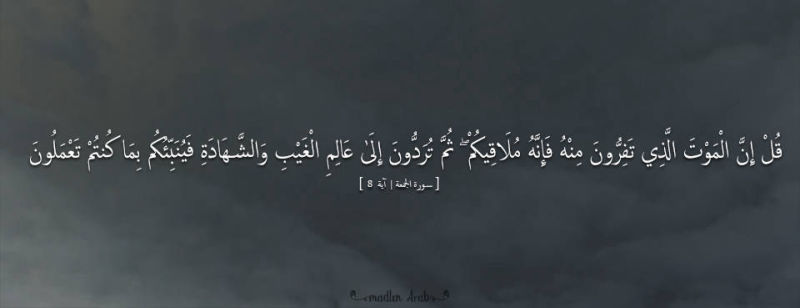 قُلْ إِنَّ الْمَوْتَ الَّذِي تَفِرُّونَ مِنْهُ فَإِنَّهُ مُلَاقِيكُمْ ۖ ثُمَّ تُرَدُّونَ إِلَىٰ عَالِمِ الْغَيْبِ وَالشَّهَادَةِ فَيُنَبِّئُكُم بِمَا كُنتُمْ تَعْمَلُونَ
[ سورة الجمعة | آية 8 ]
emadlen Arab